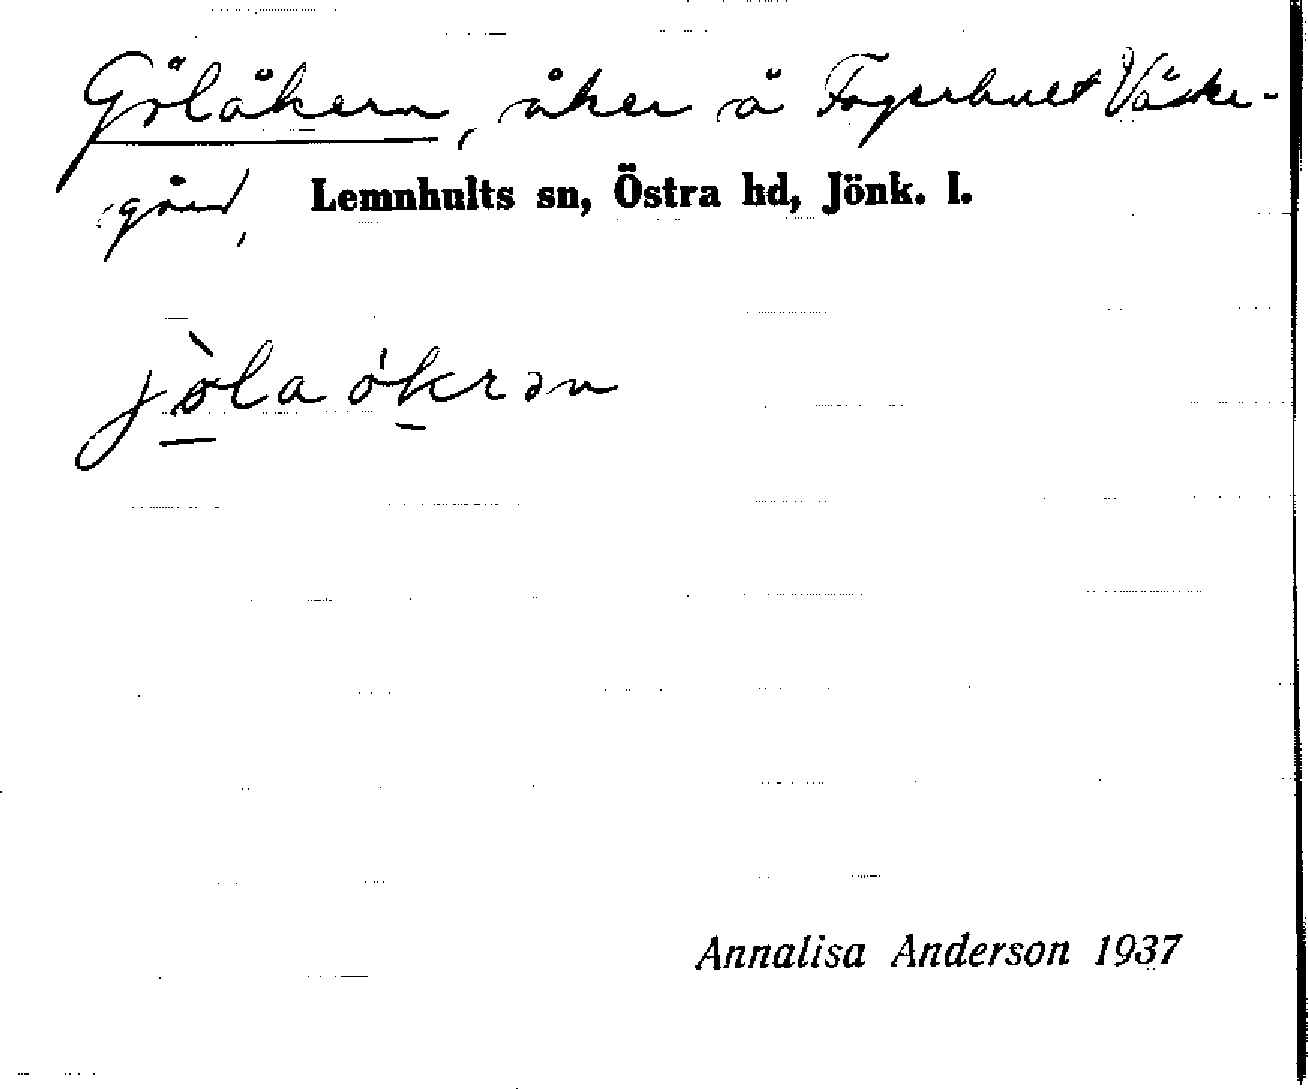 Gölåkern, åker å Fagerhult Väster-
gård, Lemnhults sn, Östra hd, Jönk. l.
jòla ókrən
Annalisa Anderson 1937